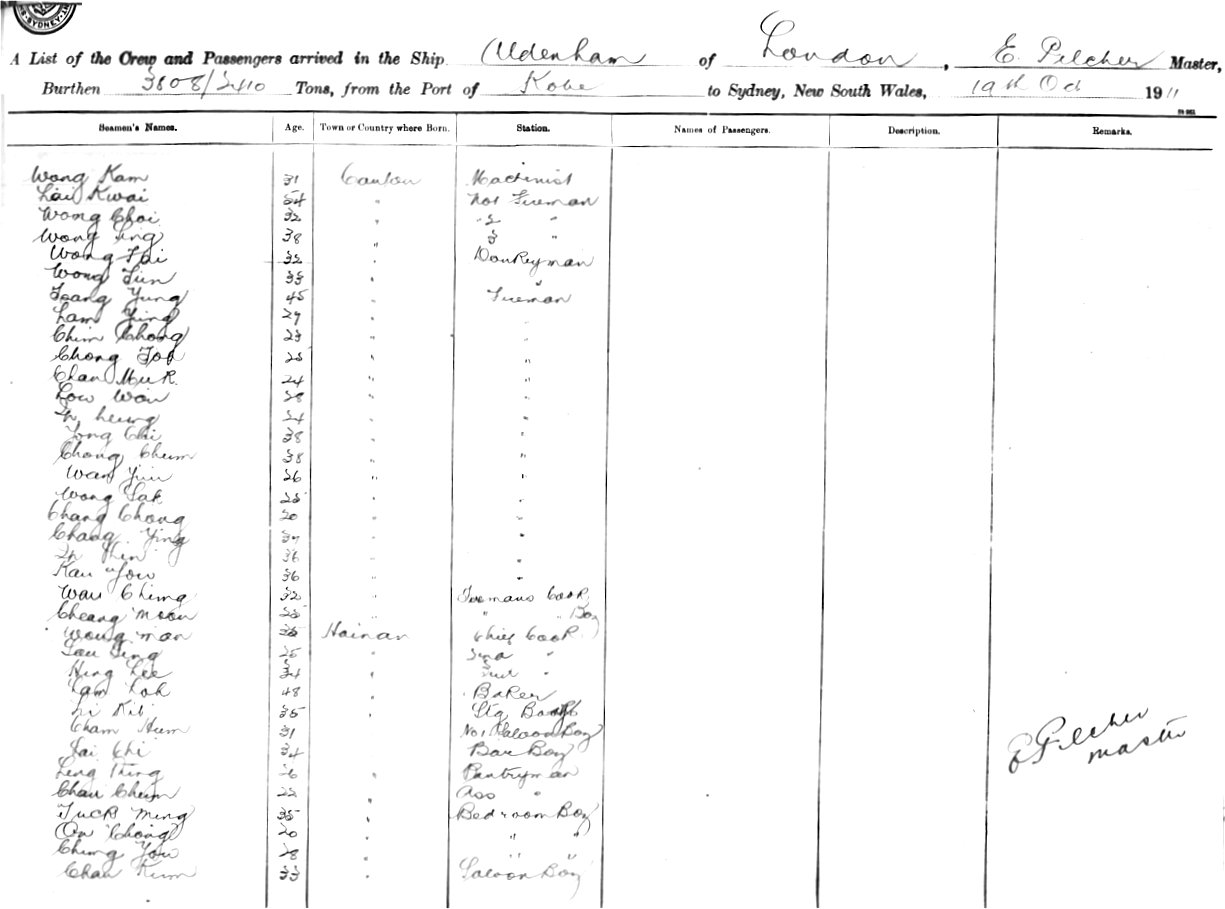 SYDNEY
A List of the Crew and Passengers arrived in the Ship Aldenham of London, E. Pilcher Master,
Burthen 3808/2410 Tons, from the Port of Kobe to Sydney, New South Wales, 19th Oct 1911
Seamen's Names. Age. Town or Country where Born. Station. Names of Passengers. Description. Remarks.
Wong Kam 31 Canton Machinist
Lai Kwai 54 " No1 Fireman
Wong Choi 32 " " 2 "
Wong Ling 38 " 3 "
Wong Tai 32 " Donkeyman
Wong Sun 33 " "
Tsang Yung 45 " Fireman
Lam Ying 29 " "
Chim Chong 23 " "
Chong 25 " "
Chan Muk 24 " "
Low Won 28 " "
leung 24 " "
Tong Chi 38 " "
Chong Cheun 38 " "
Wan Yiu 26 " "
Wong Sak 25 " "
Chang Chong 20 " "
Chang Ying 37 " "
36 " "
Kau You 36 " "
Wau Ching 32 " Firemans Cook
Cheang Moon 25 " " Boy
Wong Man 35 Hainan Chief Cook
Sau Sing 25 " 2nd "
Hing Lee 34 " "
Lam Loh 48 " Baker
Li 35 "
Cham Hum 31 No1 Saloon Boy
Lai Chi 34 Bar Boy
Leng 26 " Pantryman
Chau Cheun 22 Ass "
Tuck Ming 35 " Bedroom Boy
On Chong 20 " " "
Ching You 28 " " "
Chau Kum 33 " Saloon Boy
E Pilcher
Master